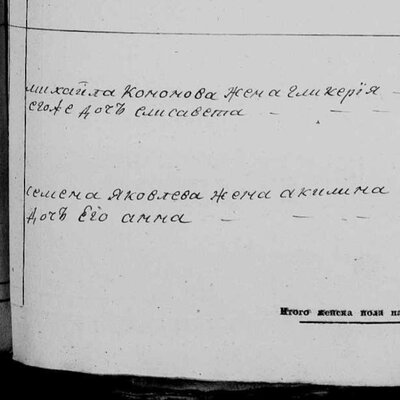 михайла Кономова жена Гликерїя —
егоже дочь елисавета — — —
семена Яковлева жена акилина
дочь Его анна — — —
Итого женска пола на